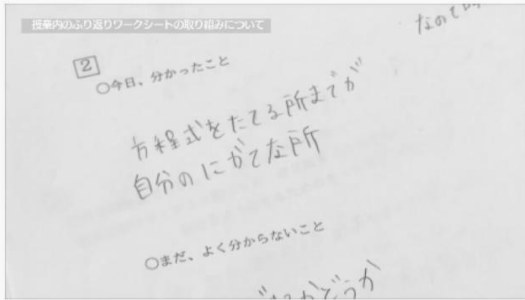 授業内のふり返りワークシートの取り組みについて
なので
2
○今日、分かったこと
方程式をたてる所までが
自分のにがてな所
○まだ、よく分からないこと
かどうか